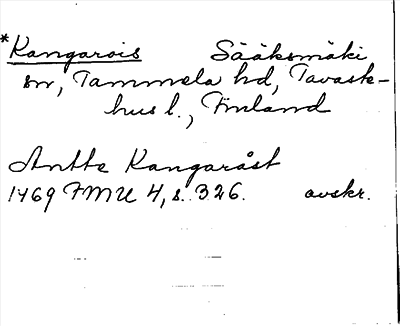 *Kangarois Sääksmäki
sn, Tammela hd, Tavast-
hus l., Finland
Antte Kangaråst
1469 FMU 4, s. 326. avskr.